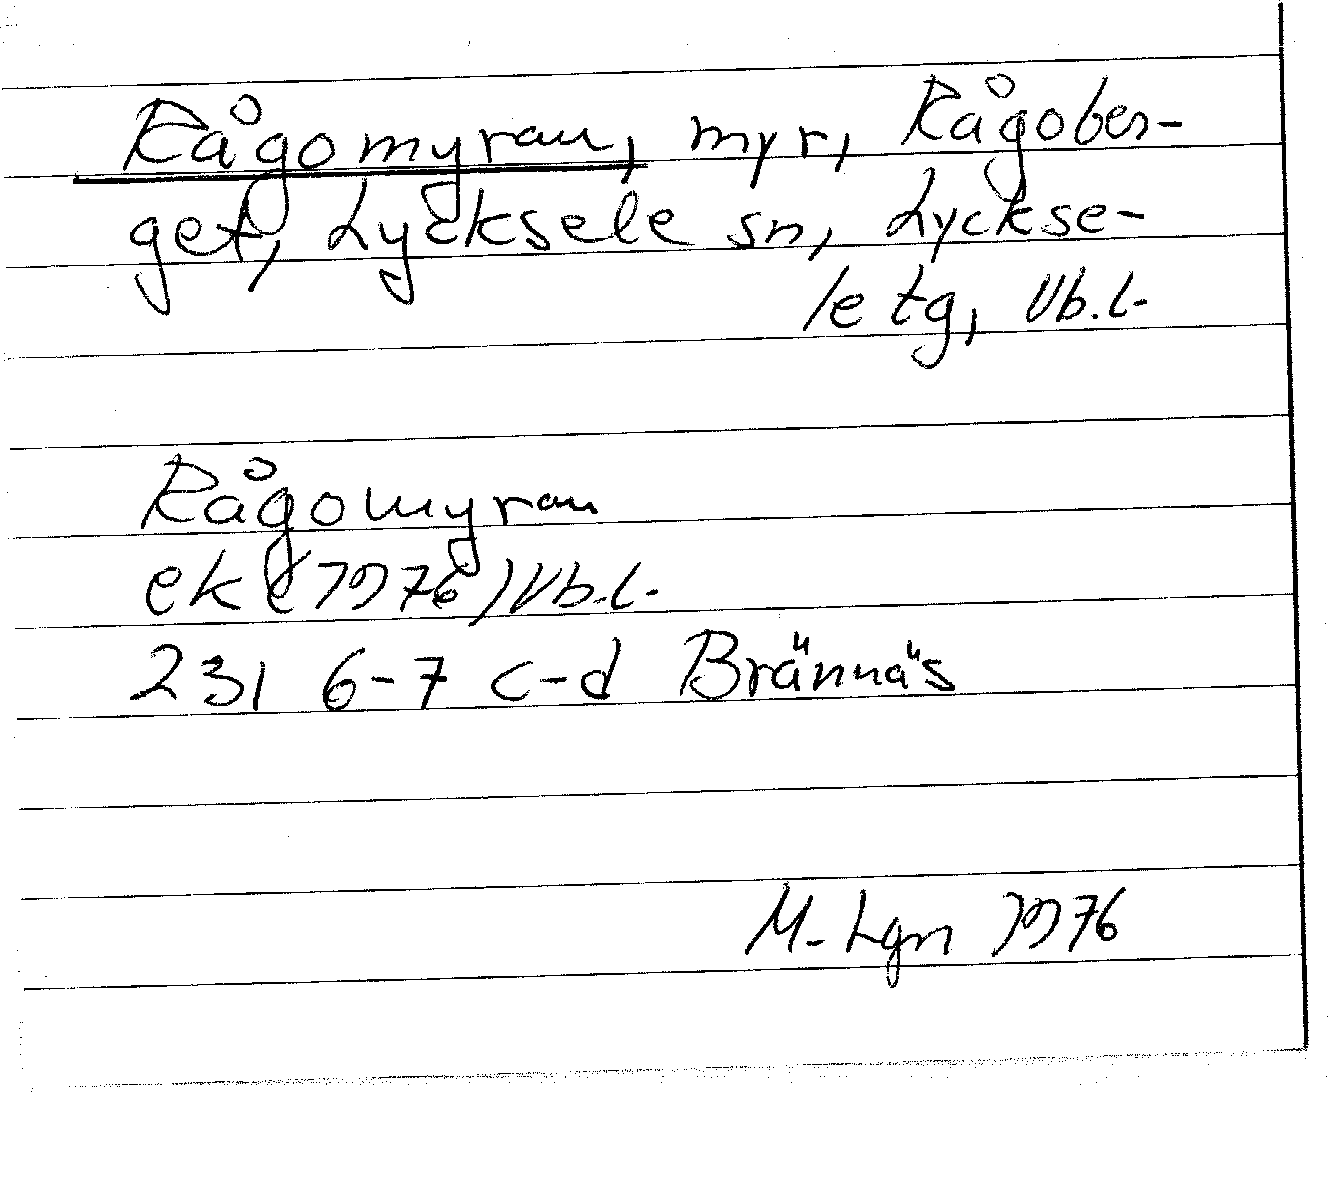 Rågomyran, myr, Rågober-
get, Lycksele sn, Lyckse-
le tg, Vb.l.
Rågomyran
ek (1976) Vb.l.
231 6-7 c-d Brännäs
M. Lgn 1976